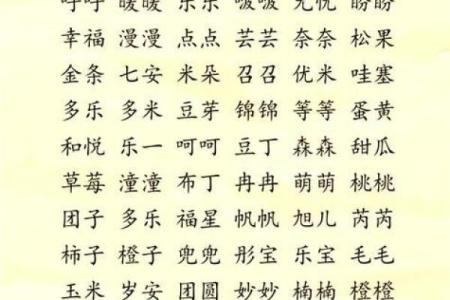 呼呼 暖暖 乐乐 啵啵 无忧 盼盼
幸福 漫漫 点点 芸芸 奈奈 松果
金条 七安 米朵 召召 优米 哇塞
多乐 多米 豆芽 锦锦 等等 蛋黄
和悦 乐一 呵呵 豆丁 森森 甜瓜
草莓 潼潼 布丁 冉冉 萌萌 桃桃
团子 多乐 福星 帆帆 旭儿 芮芮
柿子 橙子 兜兜 彤宝 乐宝 毛毛
玉米 岁安 团圆 妙妙 楠楠 橙橙